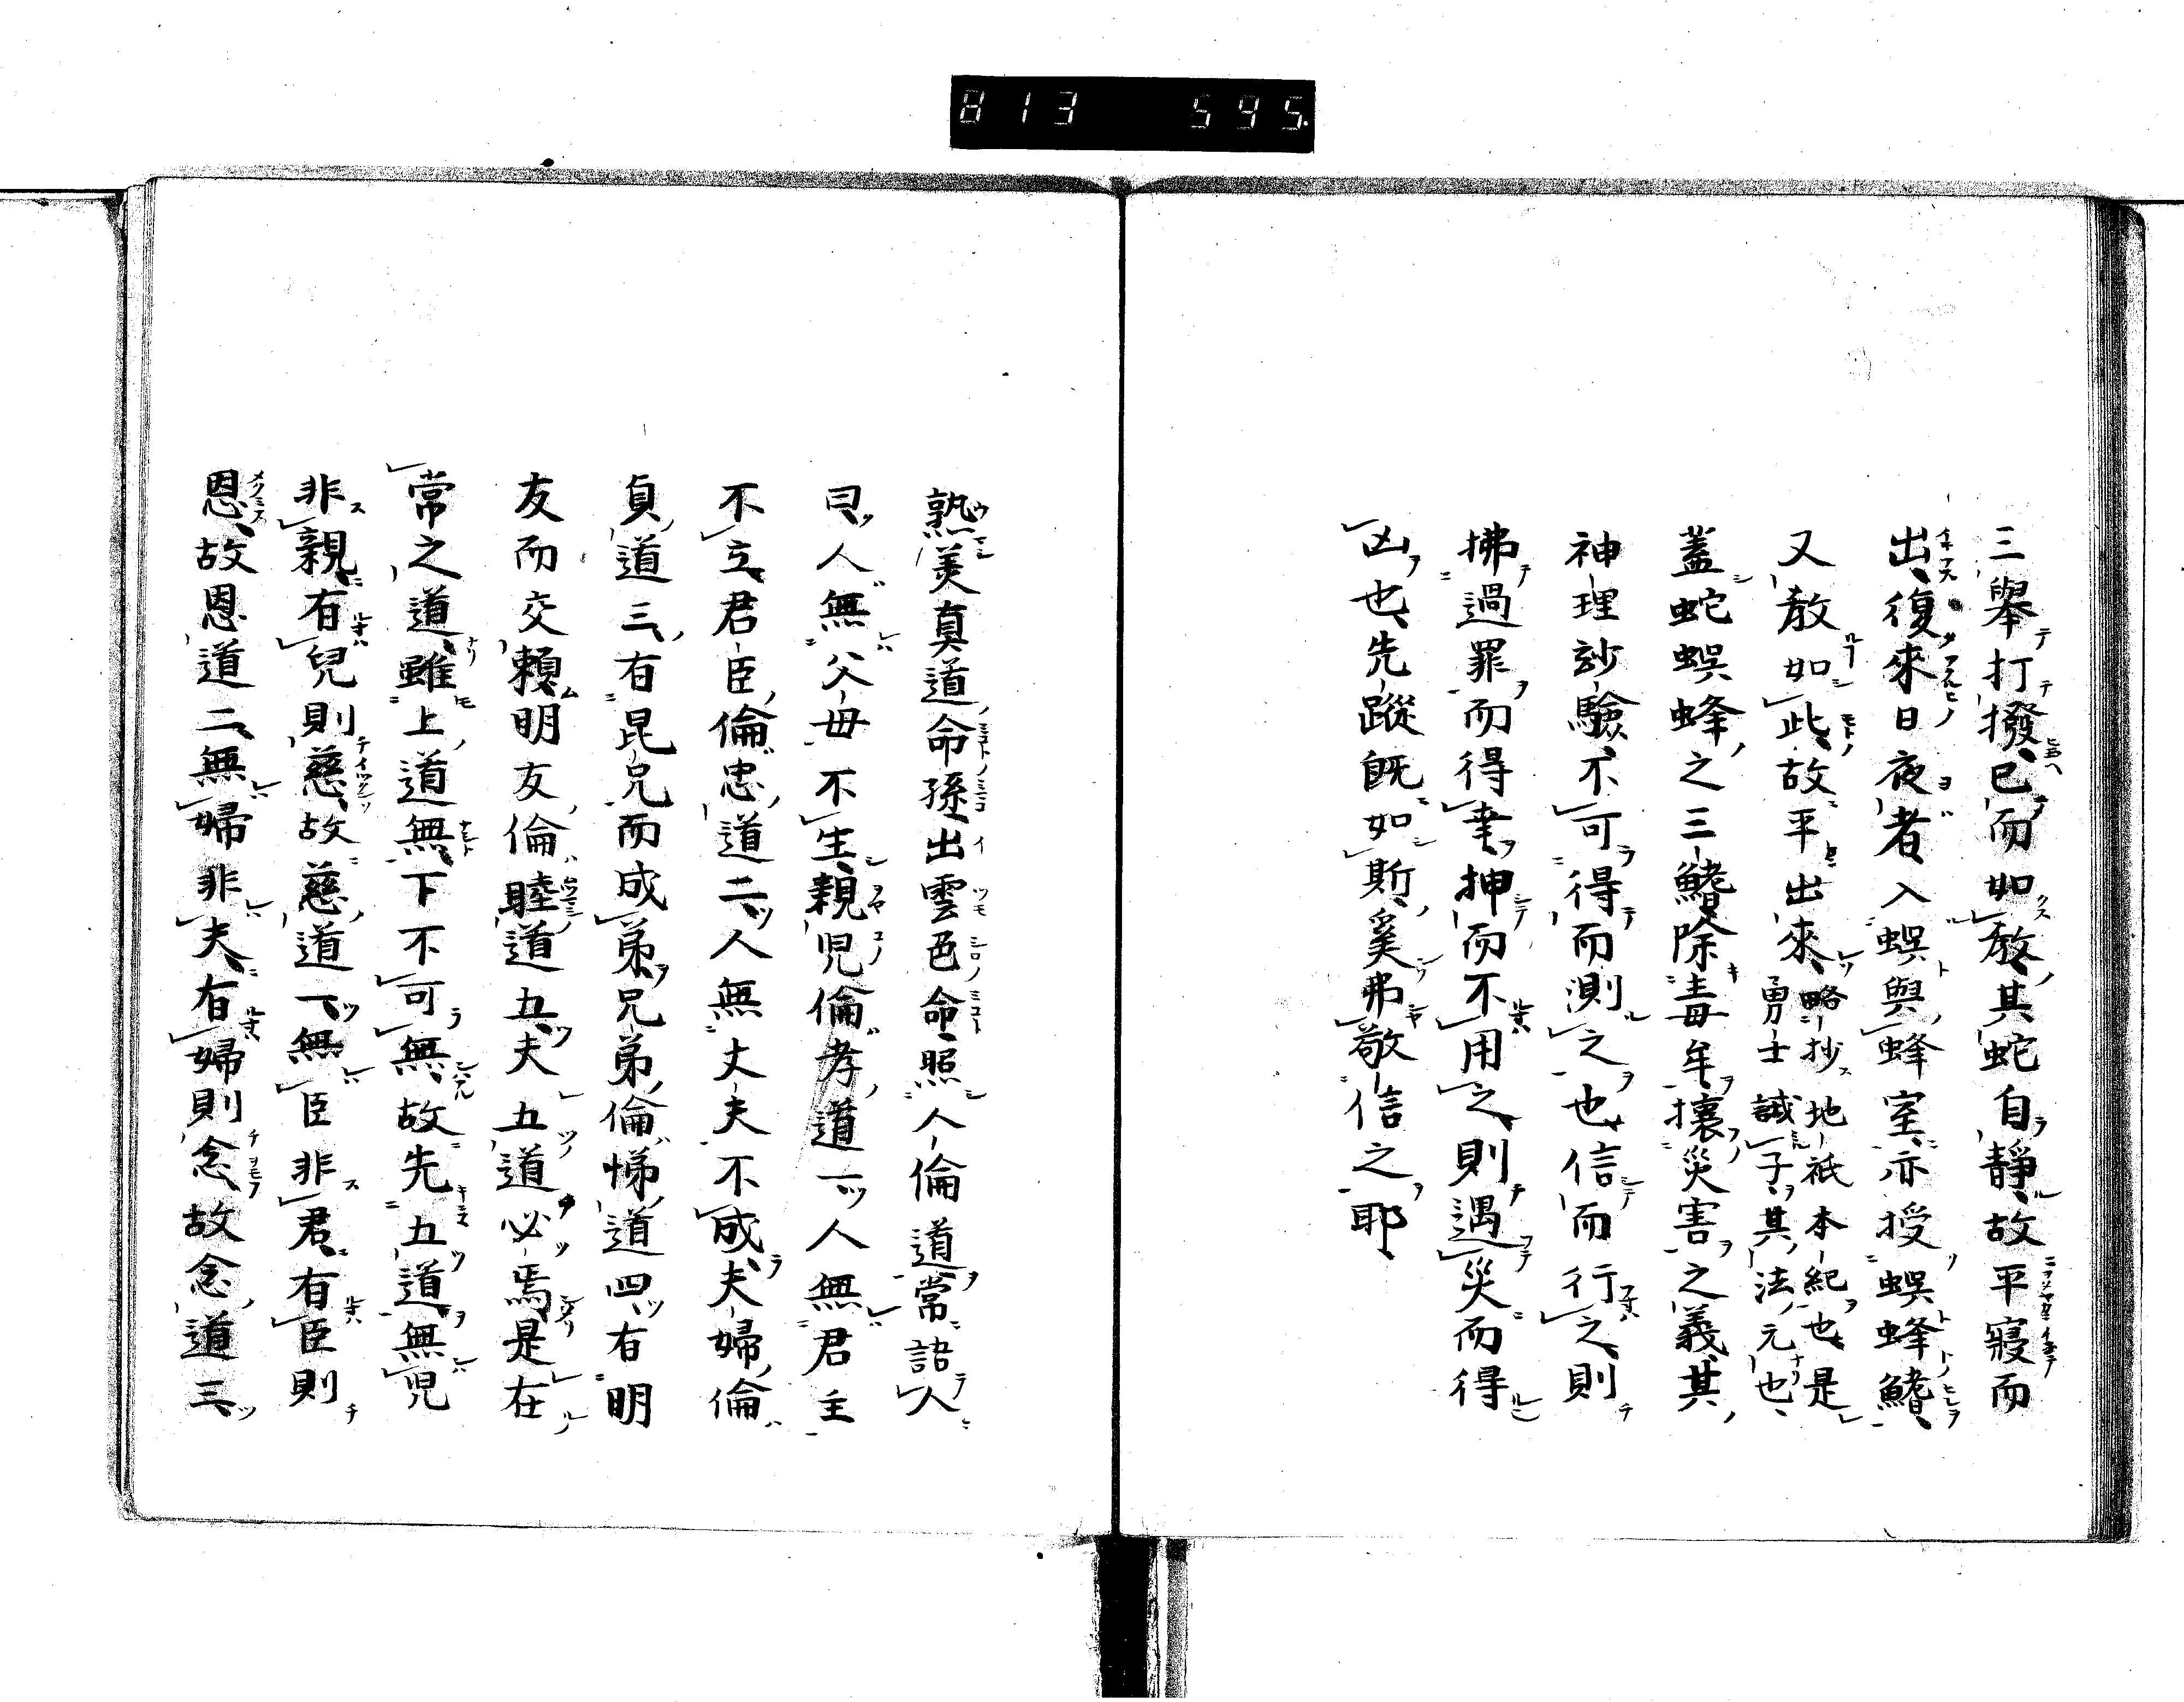 813 595
三舉打撥、已而如敎、其蛇自靜、故平寢而
出、復來日夜者、入蜈與蜂室、亦授蜈蜂鰭、
又敎如此、故平出來、略抄地祇本紀也、是
勇士誡子、其法元也、
蓋蛇蜈蜂之三鰭、除毒牟、攘災害之義、其
神理玅驗、不可得而測之也、信而行之則
拂過罪而得幸、抻而不用之、則遇災而得
凶也、先蹤旣如斯、奚弗敬信之耶、
熟美真道命孫、出雲色命、照人倫道、常語人
曰、人無父母不生、親児倫孝道一、人無君主
不立、君臣倫忠道二、人無丈夫不成、夫婦倫
貞道三、有昆兄而成弟、兄弟倫悌道四、有明
友而交賴、明友倫睦道五、夫五道必焉、是在
常之道、雖上道無、下不可無、故先五道、無児
非親、有兒則慈、故慈道一、無臣非君、有臣則
恩、故恩道二、無婦非夫、有婦則念、故念道三、